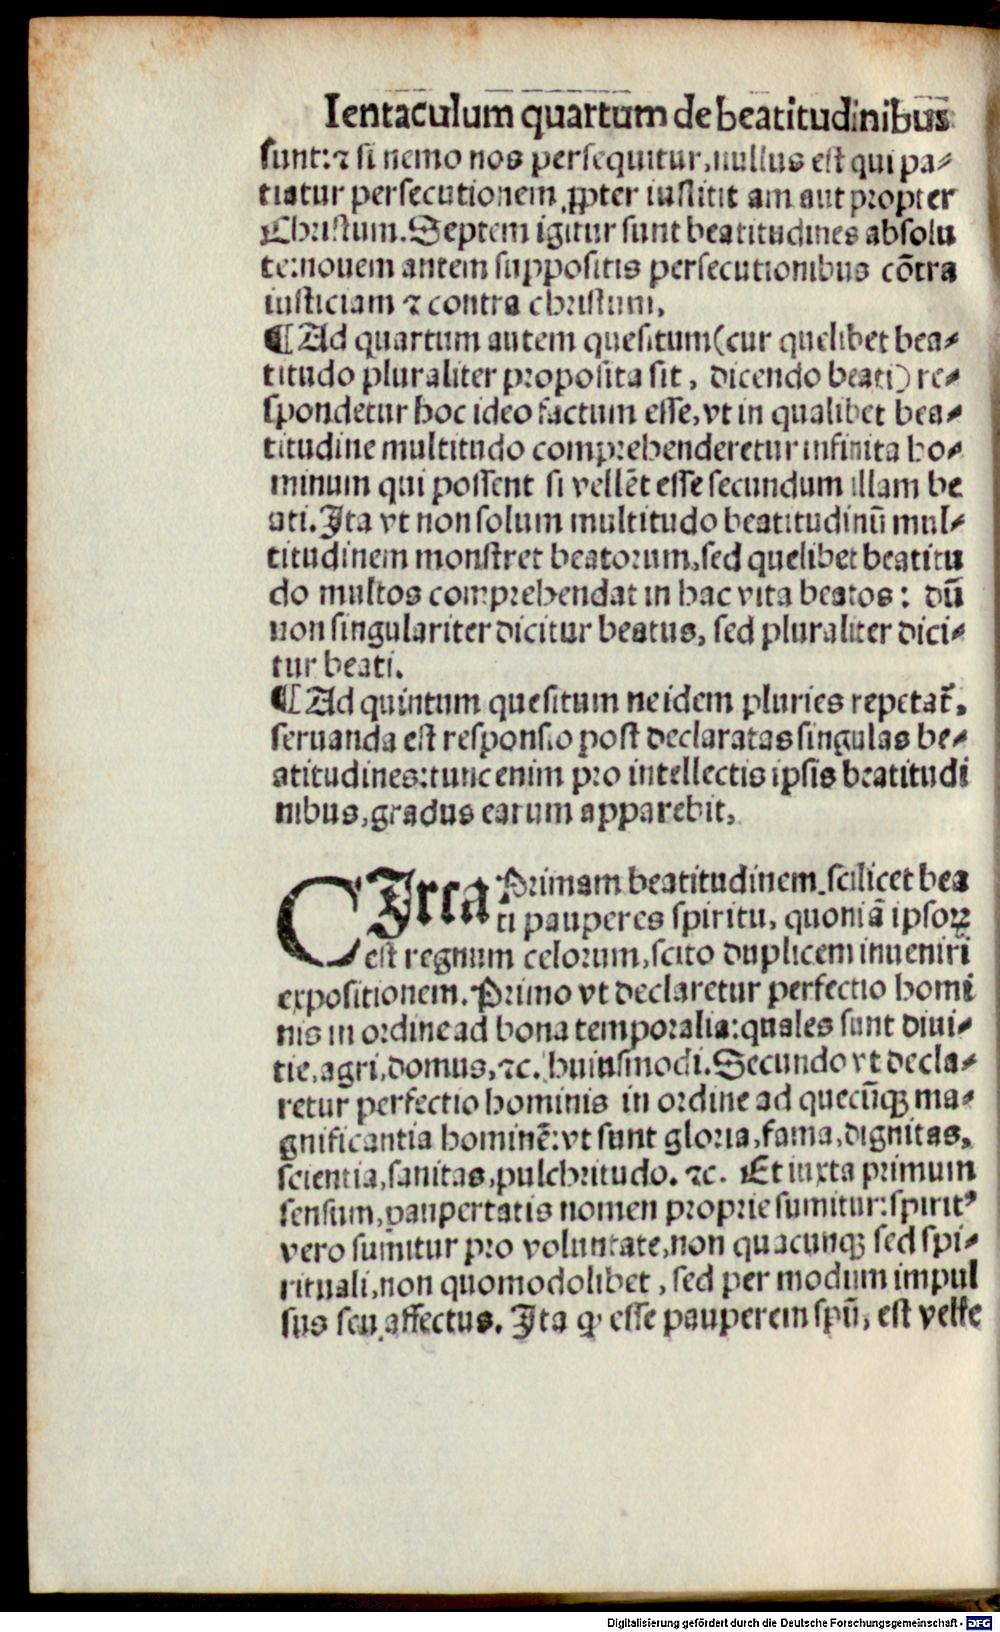 Ientaculum quartum de beatitudinibus
sunt:⁊ si nemo nos persequitur,nullus est qui pa-
tiatur persecutionem ꝓpter iustitiam aut propter
Christum.Septem igitur sunt beatitudines absolu
te:nouem autem suppositis persecutionibus cõtra
iusticiam ⁊ contra christum.
¶Ad quartum autem quesitum(cur quelibet bea-
titudo pluraliter proposita sit, dicendo beati) re-
spondetur hoc ideo factum esse,vt in qualibet bea-
titudine multitudo comprehenderetur infinita ho-
minum qui possent si vellẽt esse secundum illam be
ati.Ita vt non solum multitudo beatitudinũ mul-
titudinem monstret beatorum,sed quelibet beatitu
do multos comprehendat in hac vita beatos: dũ
non singulariter dicitur beatus, sed pluraliter dici-
tur beati.
¶Ad quintum quesitum ne idem pluries repetat̃,
seruanda est responsio post declaratas singulas be-
atitudines:tunc enim pro intellectis ipsis beatitudi
nibus,gradus earum apparebit.
CIrca Primam beatitudinem.scilicet bea
ti pauperes spiritu, quoniã ipsoꝝ
est regnum celorum,scito duplicem inueniri
expositionem.Primo vt declaretur perfectio homi
nis in ordine ad bona temporalia:quales sunt diui-
tie,agri,domus,⁊c. huiusmodi.Secundo vt decla-
retur perfectio hominis in ordine ad quecũqꝫ ma-
gnificantia hominẽ:vt sunt gloria,fama,dignitas,
scientia,sanitas,pulchritudo. ⁊c. Et iuxta primum
sensum,paupertatis nomen proprie sumitur:spiritꝰ
vero sumitur pro voluntate,non quacunqꝫ sed spi-
rituali,non quomodolibet, sed per modum impul
sus seu affectus. Ita ꝙ esse pauperem spũ, est velle
Digitalisierung gefördert durch die Deutsche Forschungsgemeinschaft - DFG